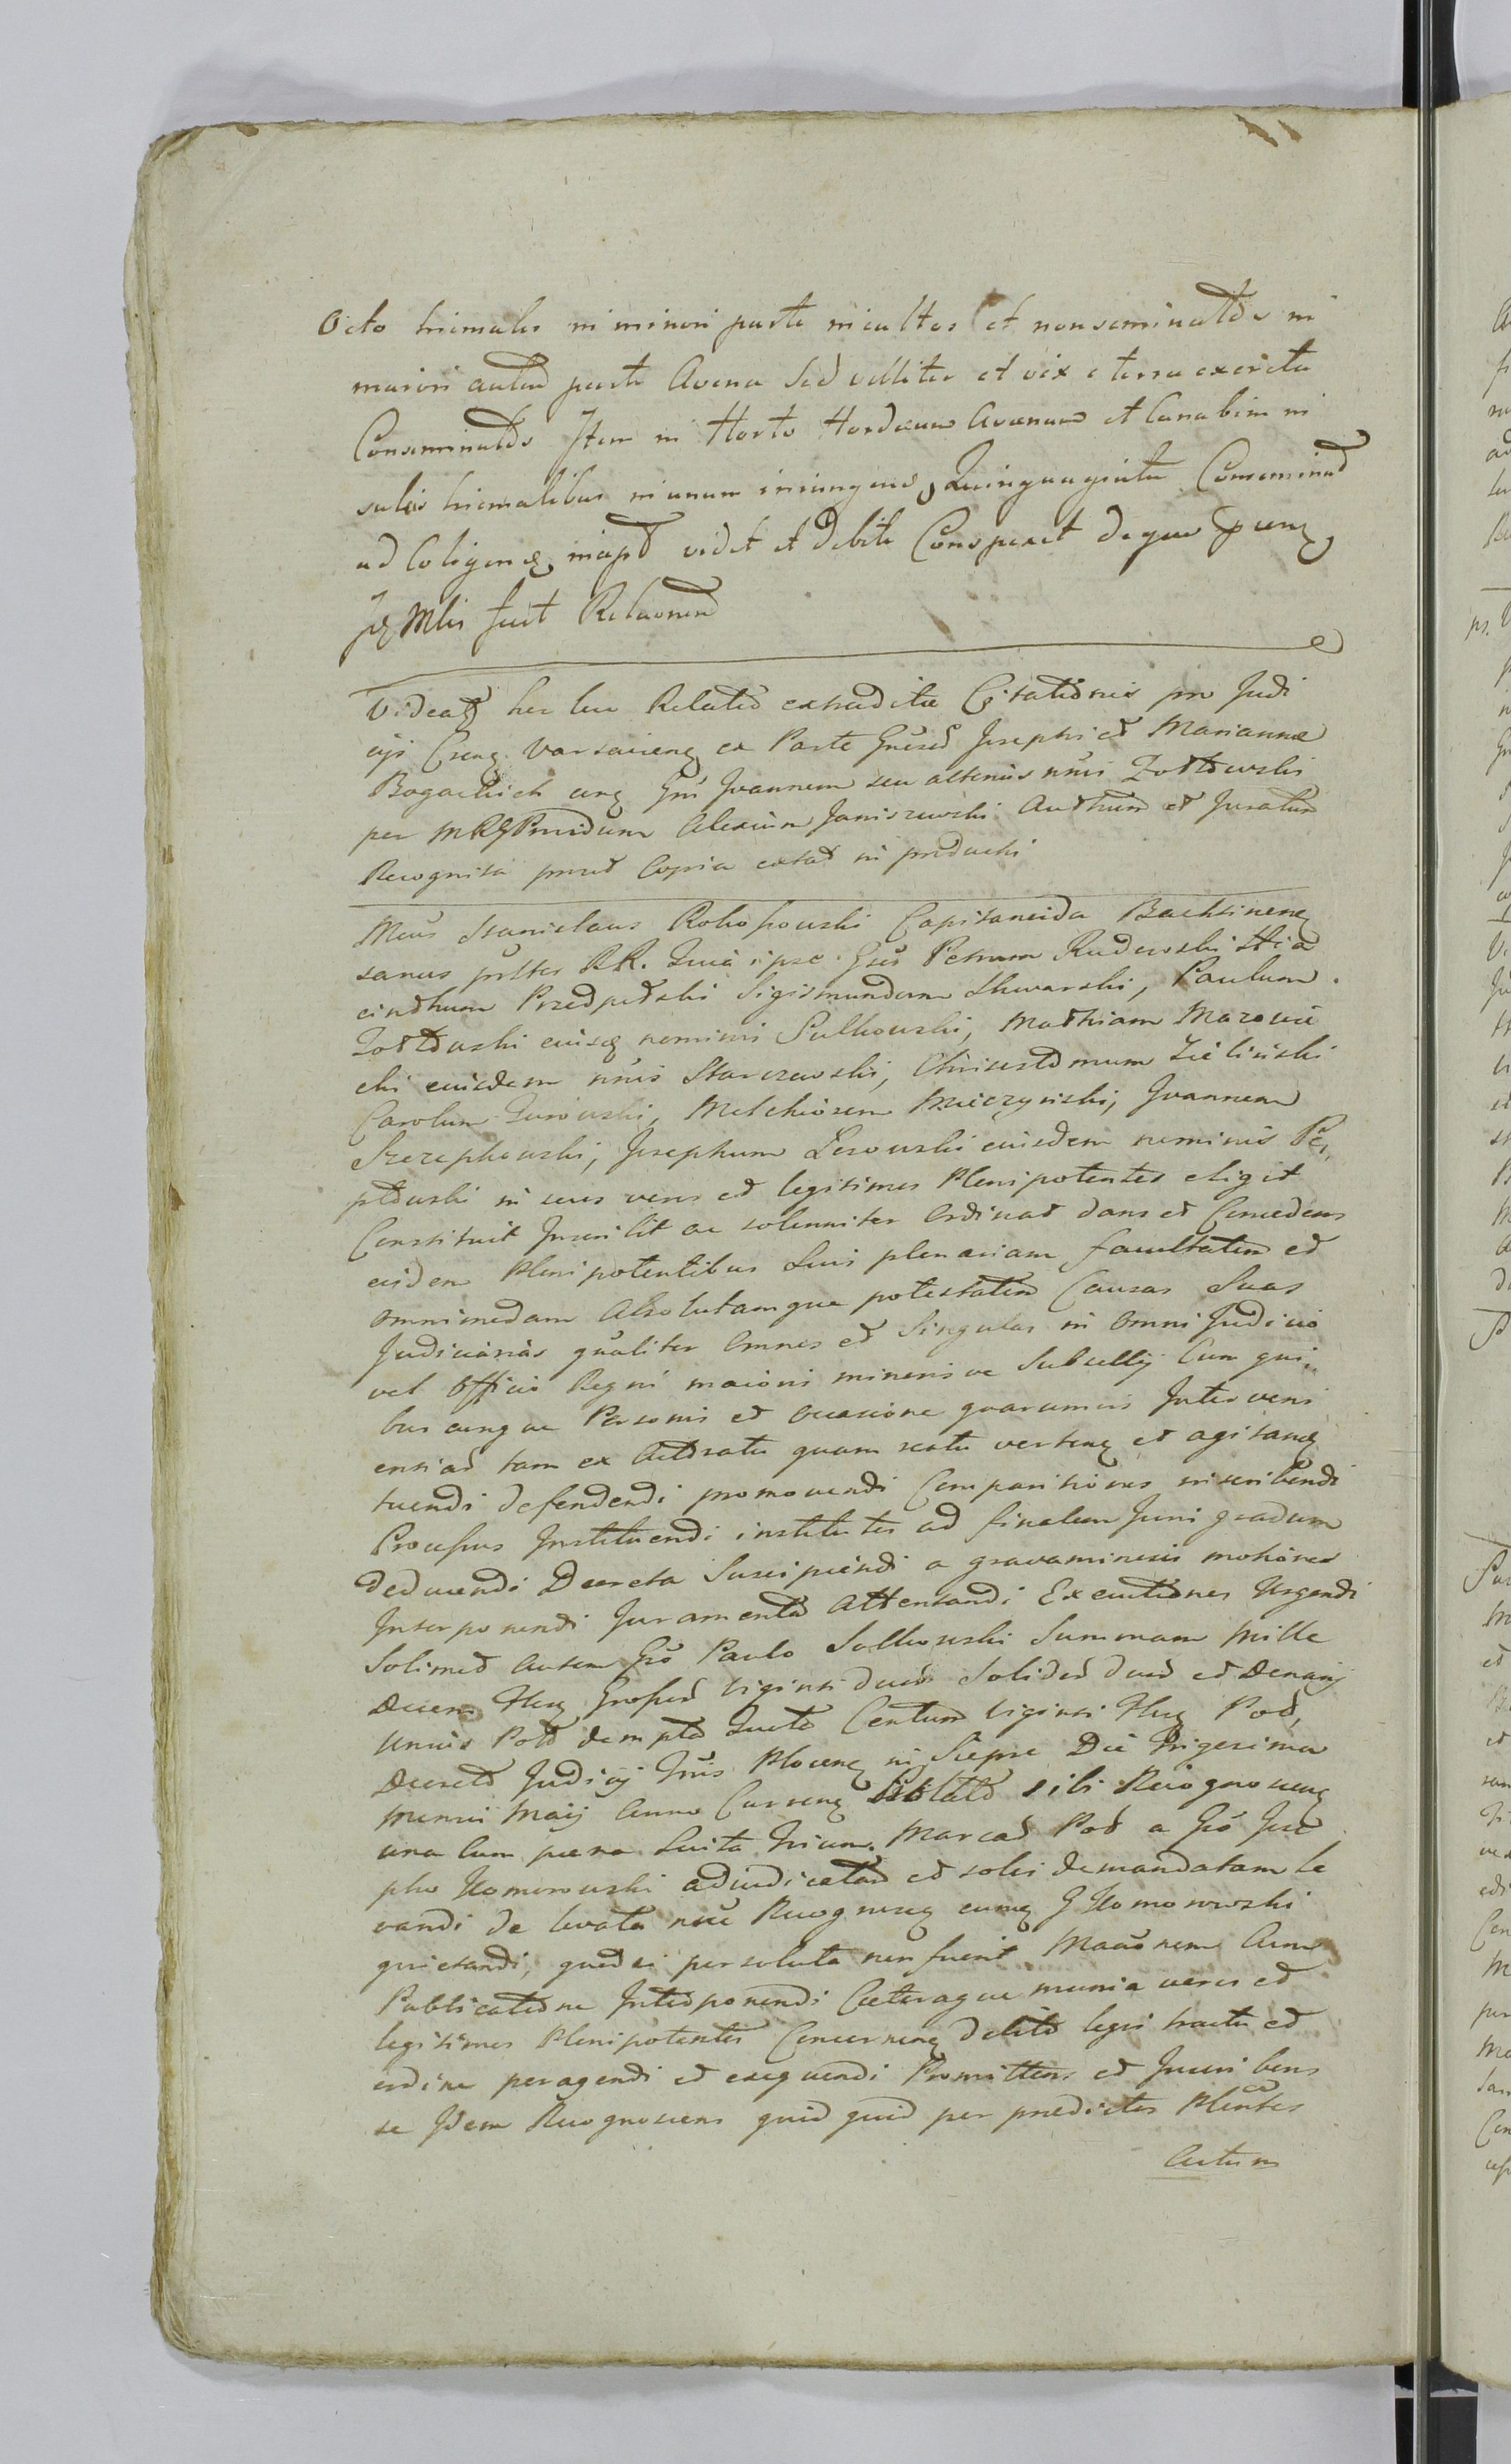 Octo hiemales in minori parte incultos et nonseminatos in
maiori autem parte Avena sed villiter et vix e terra exercita
Conseminatos Item in Horto Hordeum Avenam et Canabim in
sulis hiemalibus in unum iniungens Quinquaginta Conseminat
ad Coligen inapt vidit et debite Conspexit de quo
Mlis fecit Relaonem
Videatur hic loci Relatio extraditae Citationis pro Judi
cijs Varsaviens ex Parte Josephi et Mariannae
Bogackich Joannem seu alterius nnis Zoltowski
per Providum Alexium Janiszewski Authum et Juratum
Recognita prout Copia extat in productis
Mcus Stanislaus Rokossowski Capitaneida Bachtinens
sanus RR. Quia ipse Petrum Rudowski Hia
cinthum Przedpelski Sigismundum Skwarski, Paulum
Zoltowski eiusq nominis Sulkowski, Mathiam Mazowie
cki eiusdem nnis Starczewski, Chrisostomum Zielinski
Carolum Zurowski, Melchiorem Mieczynski, Joannem
Szczepkowski, Josephum Lesowski eiusdem nominis Pe
ptowski in suos veros et legitimos Plenipotentes eligit
Constituit Inscribit ac solenniter Ordinat dans et Concedens
eisdem Plenipotentibus Suis plenariam facultatem et
omnimodam Absolutamque potestatem Causas Suas
Judiciarias qualiter Omnes et Singulas in Omni Judicio
vel Officio Regni maioris minorisve Subsellij Cum qui
bus cunque Personis et occasione quarumvis Interveni
entiar tam ex Actoratu quam reatu verten et agitand
tuendi defendendi promovendi Comparitiones inscribendi
Processus Instituendi institutos ad finalem Juris gradum
deducendi Decreta Suscipiendi a gravaminosis motiones
Interponendi Juramenta Attentandi Executiones Urgendi
Solimet autem Paulo Sulkowski Summam Mille
Decem Grossos viginti duos Solidos duos et Denarij
Unius Pol dempto Centum viginti Pol,
Decreto Judicij Plocens in Sieprc Die Trigesima
mensis Maij Anno Curren sibi Recognoscens
una Cum paena Luita Trium Marcar Pol a Jose
pho Komorowski adiudicatam et solvi demandatam le
vandi de levata Recognoscens eumq G Komorowski
quietandi, quod si persoluta non fuerit Maonem Cum
Publicatione Interponendi Caeteraque munia veros et
legitimos Plenipotentes Concernens debito legis tractu et
ordine peragendi et exequendi Promittens et Inscribens
se Idem Recognoscens quid quid per praedictos Plentes
Actum